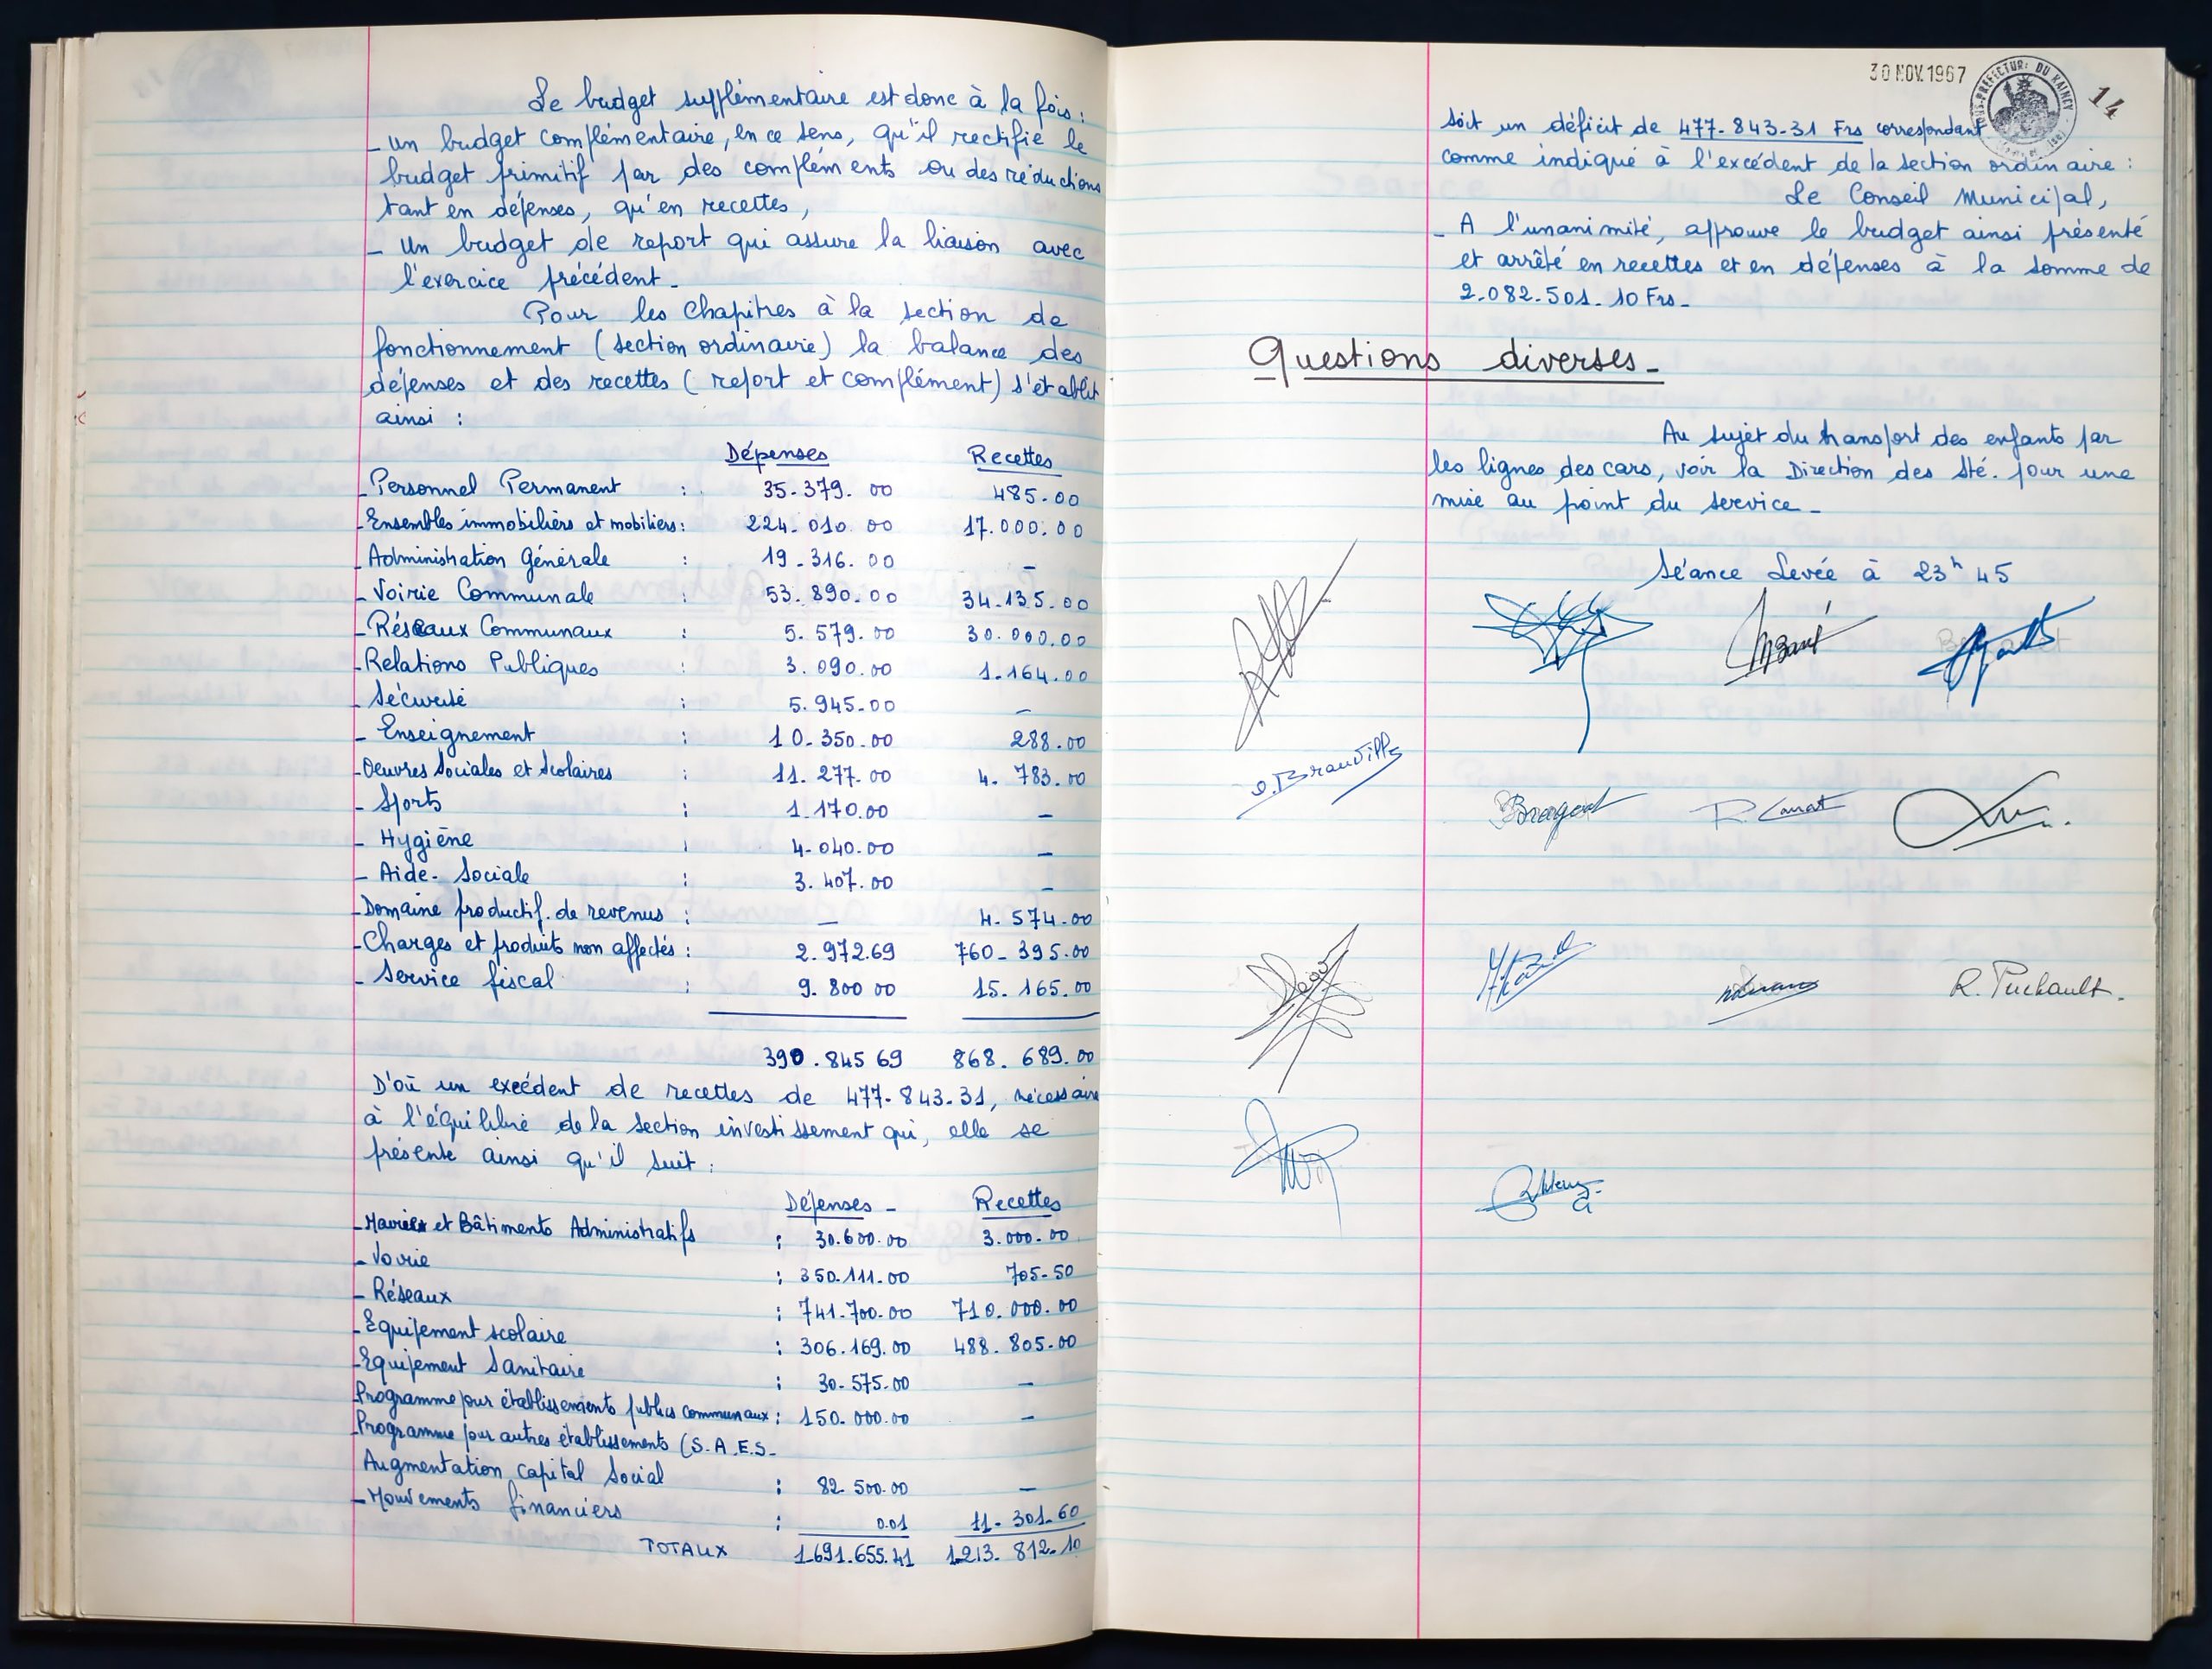 Le budget supplémentaire est donc à la fois :
_ un budget complémentaire, en ce sens, qu'il rectifie le
budget primitif par des compléments ou des réductions
tant en dépenses, qu'en recettes,
_ un budget de report qui assure la liaison avec
l'exercice précédent _
Pour les chapitres à la section de
fonctionnement (section ordinaire) la balance des
dépenses et des recettes (report et complément) s'établit
ainsi :
Dépenses Recettes
_ Personnel Permanent : 35.379.00 485.00
_ Ensembles immobiliers et mobiliers : 224.010.00 17.000.00
_ Administration Générale : 19.316.00 _
_ Voirie Communale : 53.890.00 34.135.00
_ Réseaux Communaux : 5.579.00 30.000.00
_ Relations Publiques : 3.090.00 1.164.00
_ Sécurité : 5.945.00 _
_ Enseignement : 10.350.00 288.00
_ Oeuvres Sociales et Scolaires : 11.277.00 4.783.00
_ Sports : 1.170.00 _
_ Hygiène : 4.040.00 _
_ Aide. Sociale : 3.407.00 _
_ Domaine productif. de revenus : _ 4.574.00
_ Charges et produits non affectés : 2.972.69 760.395.00
_ Service fiscal : 9.800 00 15.165.00
390.845 69 868.689.00
D'où un excédent de recettes de 477.843.31, nécessaire
à l'équilibre de la section investissement qui, elle se
présente ainsi qu'il suit :
Dépenses _ Recettes
_ Mairies et Bâtiments Administratifs : 30.600.00 3.000.00
_ Voirie : 350.111.00 705.50
_ Réseaux : 741.700.00 710.000.00
_ Equipement scolaire : 306.169.00 488.805.00
_ Equipement Sanitaire : 30.575.00 _
_ Programme pour établissements publics communaux : 150.000.00 _
_ Programme pour autres établissements (S.A.E.S_
Augmentation capital Social : 82.500.00 _
_ Mouvements financiers : 0.01 11.301.60
TOTAUX 1.691.655.41 1.213.812.10
30 NOV. 1967
SOUS-PREFECTURE DU RAINCY
14
soit un déficit de 477.843.31 Frs correspondant
comme indiqué à l'excédent de la section ordinaire :
Le Conseil Municipal,
_ A l'unanimité, approuve le budget ainsi présenté
et arrêté en recettes et en dépenses à la somme de
2.082.501.10 Frs _
Questions diverses _
Au sujet du transport des enfants par
les lignes des cars, voir la Direction des Sté. pour une
mise au point du service _
Séance Levée à 23h 45
R. Canat
R. Puchault.